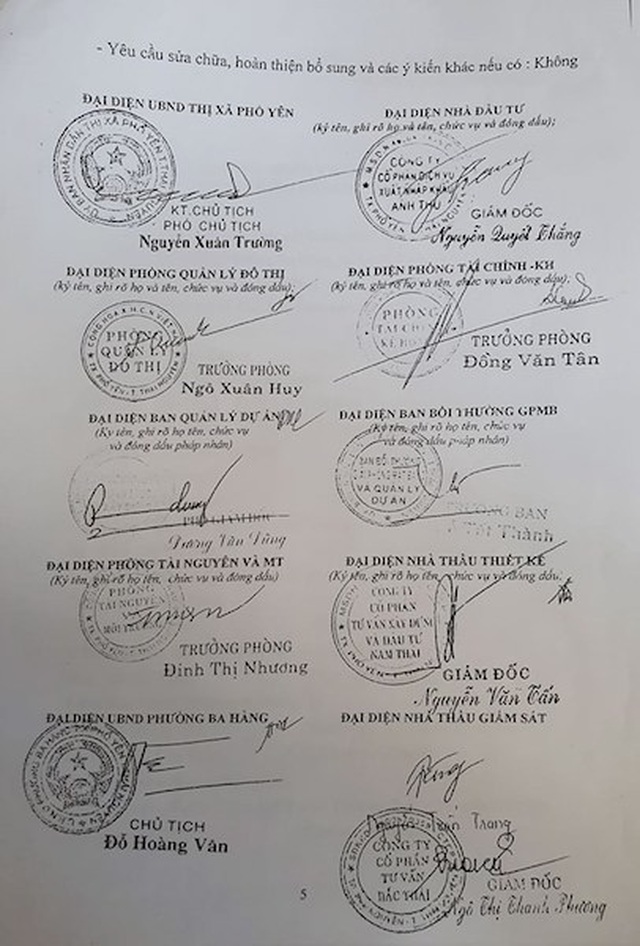 - Yêu cầu sửa chữa, hoàn thiện bổ sung và các ý kiến khác nếu có : Không
ĐẠI DIỆN UBND THỊ XÃ PHỔ YÊN
KT.CHỦ TỊCH
PHÓ CHỦ TỊCH
Nguyễn Xuân Trường
ĐẠI DIỆN NHÀ ĐẦU TƯ
(ký tên, ghi rõ họ và tên, chức vụ và đóng dấu);
CÔNG TY
CỔ PHẦN DỊCH VỤ
XUẤT NHẬP KHẨU
ANH THƯ
GIÁM ĐỐC
Nguyễn Quyết Thắng
ĐẠI DIỆN PHÒNG QUẢN LÝ ĐÔ THỊ
(ký tên, ghi rõ họ và tên, chức vụ và đóng dấu);
PHÒNG
QUẢN LÝ
ĐÔ THỊ
TRƯỞNG PHÒNG
Ngô Xuân Huy
ĐẠI DIỆN PHÒNG TÀI CHÍNH -KH
(ký tên, ghi rõ họ và tên, chức vụ và đóng dấu);
PHÒNG
TÀI CHÍNH
TRƯỞNG PHÒNG
Đồng Văn Tân
ĐẠI DIỆN BAN QUẢN LÝ DỰ ÁN
(Ký tên, ghi rõ họ tên, chức vụ
và đóng dấu pháp nhân)
PHÓ GIÁM ĐỐC
Dương Văn Dũng
ĐẠI DIỆN BAN BỒI THƯỜNG GPMB
(Ký tên, ghi rõ họ tên, chức vụ
và đóng dấu pháp nhân)
BAN BỒI THƯỜNG
VÀ QUẢN LÝ
DỰ ÁN
TRƯỞNG BAN
Thành
ĐẠI DIỆN PHÒNG TÀI NGUYÊN VÀ MT
(Ký tên, ghi rõ họ tên, chức vụ và đóng dấu)
PHÒNG
TÀI NGUYÊN
TRƯỞNG PHÒNG
Đinh Thị Nhương
ĐẠI DIỆN NHÀ THẦU THIẾT KẾ
(Ký tên, ghi rõ họ tên, chức vụ và đóng dấu;
CÔNG TY
CỔ PHẦN
TƯ VẤN XÂY DỰNG
VÀ ĐẦU TƯ
NAM THÁI
GIÁM ĐỐC
Nguyễn Văn Tấn
ĐẠI DIỆN UBND PHƯỜNG BA HÀNG
CHỦ TỊCH
Đỗ Hoàng Vân
ĐẠI DIỆN NHÀ THẦU GIÁM SÁT
Trang
CÔNG TY
CỔ PHẦN
TƯ VẤN
BẮC THÁI
GIÁM ĐỐC
Ngô Thị Thanh Phương
5